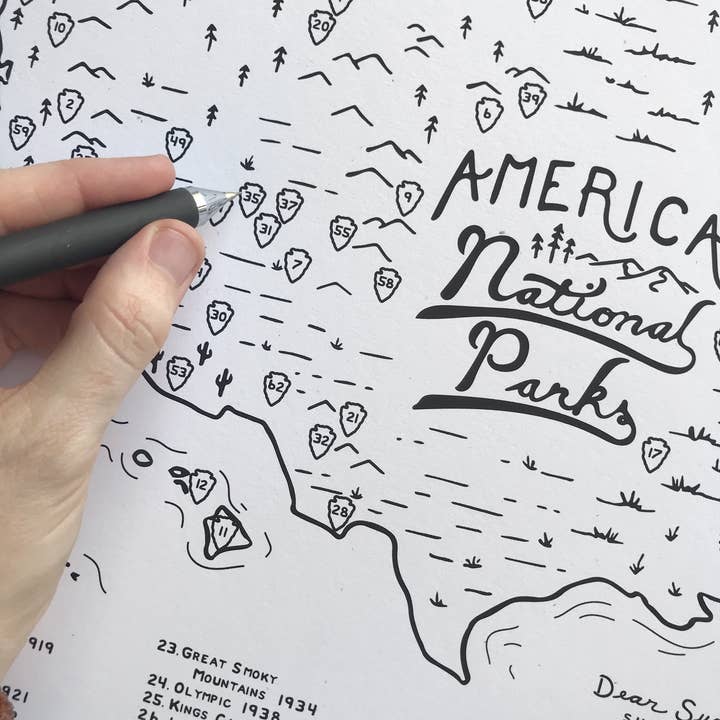 10
20
2
59
6
39
49
35
37
9
31
55
7
58
30
53
62
21
32
28
12
11
17
AMERICA
National
Parks
1919
1921
23. GREAT SMOKY
MOUNTAINS 1934
24. OLYMPIC 1938
25. KINGS
Dear